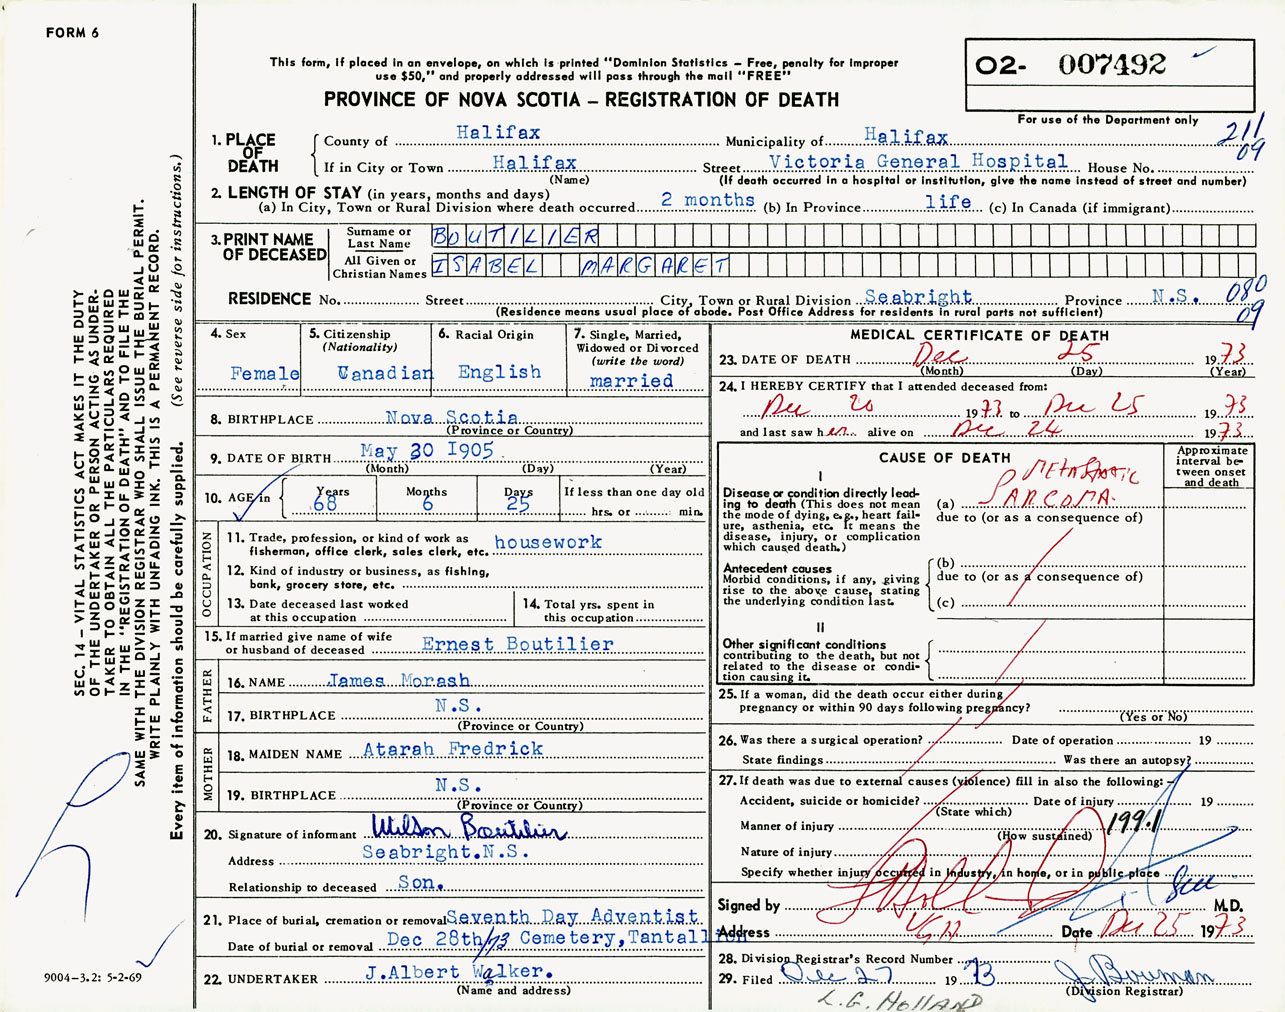 FORM 6
This form, if placed in an envelope, on which is printed "Dominion Statistics – Free, penalty for improper
use $50," and properly addressed will pass through the mail "FREE"
PROVINCE OF NOVA SCOTIA – REGISTRATION OF DEATH
O2- 007492
For use of the Department only
211
09
1. PLACE OF DEATH
County of Halifax Municipality of Halifax
If in City or Town Halifax Street Victoria General Hospital House No.
(Name) (If death occurred in a hospital or institution, give the name instead of street and number)
2. LENGTH OF STAY (in years, months and days)
(a) In City, Town or Rural Division where death occurred 2 months (b) In Province life (c) In Canada (if immigrant)
3. PRINT NAME OF DECEASED
Surname or Last Name BOUTILIER
All Given or Christian Names ISABEL MARGARET
RESIDENCE No. Street City, Town or Rural Division Seabright Province N.S. 080
(Residence means usual place of abode. Post Office Address for residents in rural parts not sufficient) 09
4. Sex Female
5. Citizenship (Nationality) Canadian
6. Racial Origin English
7. Single, Married, Widowed or Divorced (write the word) married
8. BIRTHPLACE Nova Scotia
(Province or Country)
9. DATE OF BIRTH May 30 1905
(Month) (Day) (Year)
10. AGE in Years 68 Months 6 Days 25 If less than one day old hrs. or min.
OCCUPATION
11. Trade, profession, or kind of work as fisherman, office clerk, sales clerk, etc. housework
12. Kind of industry or business, as fishing, bank, grocery store, etc.
13. Date deceased last worked at this occupation
14. Total yrs. spent in this occupation
15. If married give name of wife or husband of deceased Ernest Boutilier
FATHER
16. NAME James Morash
17. BIRTHPLACE N.S.
(Province or Country)
MOTHER
18. MAIDEN NAME Atarah Fredrick
19. BIRTHPLACE N.S.
(Province or Country)
20. Signature of informant Wilson Boutilier
Address Seabright.N.S.
Relationship to deceased Son.
21. Place of burial, cremation or removal Seventh Day Adventist
Date of burial or removal Dec 28th/73 Cemetery, Tantallon
22. UNDERTAKER J.Albert Walker.
(Name and address)
MEDICAL CERTIFICATE OF DEATH
23. DATE OF DEATH Dec 25 1973
(Month) (Day) (Year)
24. I HEREBY CERTIFY that I attended deceased from:
Dec 20 1973 to Dec 25 1973
and last saw her alive on Dec 24 1973
CAUSE OF DEATH
Approximate interval between onset and death
I
Disease or condition directly leading to death (This does not mean the mode of dying, e.g., heart failure, asthenia, etc. It means the disease, injury, or complication which caused death.)
(a) METASTATIC SARCOMA.
due to (or as a consequence of)
Antecedent causes
Morbid conditions, if any, giving rise to the above cause, stating the underlying condition last.
(b)
due to (or as a consequence of)
(c)
II
Other significant conditions
contributing to the death, but not related to the disease or condition causing it.
25. If a woman, did the death occur either during pregnancy or within 90 days following pregnancy?
(Yes or No)
26. Was there a surgical operation? Date of operation 19
State findings Was there an autopsy?
27. If death was due to external causes (violence) fill in also the following:–
Accident, suicide or homicide? Date of injury 19
(State which)
Manner of injury 199.1
(How sustained)
Nature of injury
Specify whether injury occurred in industry, in home, or in public place
Signed by M.D.
Address VGH Date Dec 25 1973
28. Division Registrar's Record Number
29. Filed Dec 27 1973 J. Bouman
(Division Registrar)
L.G. HOLLAND
SEC. 14 – VITAL STATISTICS ACT MAKES IT THE DUTY
OF THE UNDERTAKER OR PERSON ACTING AS UNDER-
TAKER TO OBTAIN ALL THE PARTICULARS REQUIRED
IN THE "REGISTRATION OF DEATH" AND TO FILE THE
SAME WITH THE DIVISION REGISTRAR WHO SHALL ISSUE THE BURIAL PERMIT.
WRITE PLAINLY WITH UNFADING INK. THIS IS A PERMANENT RECORD.
Every item of information should be carefully supplied. (See reverse side for instructions.)
9004–3.2: 5-2-69